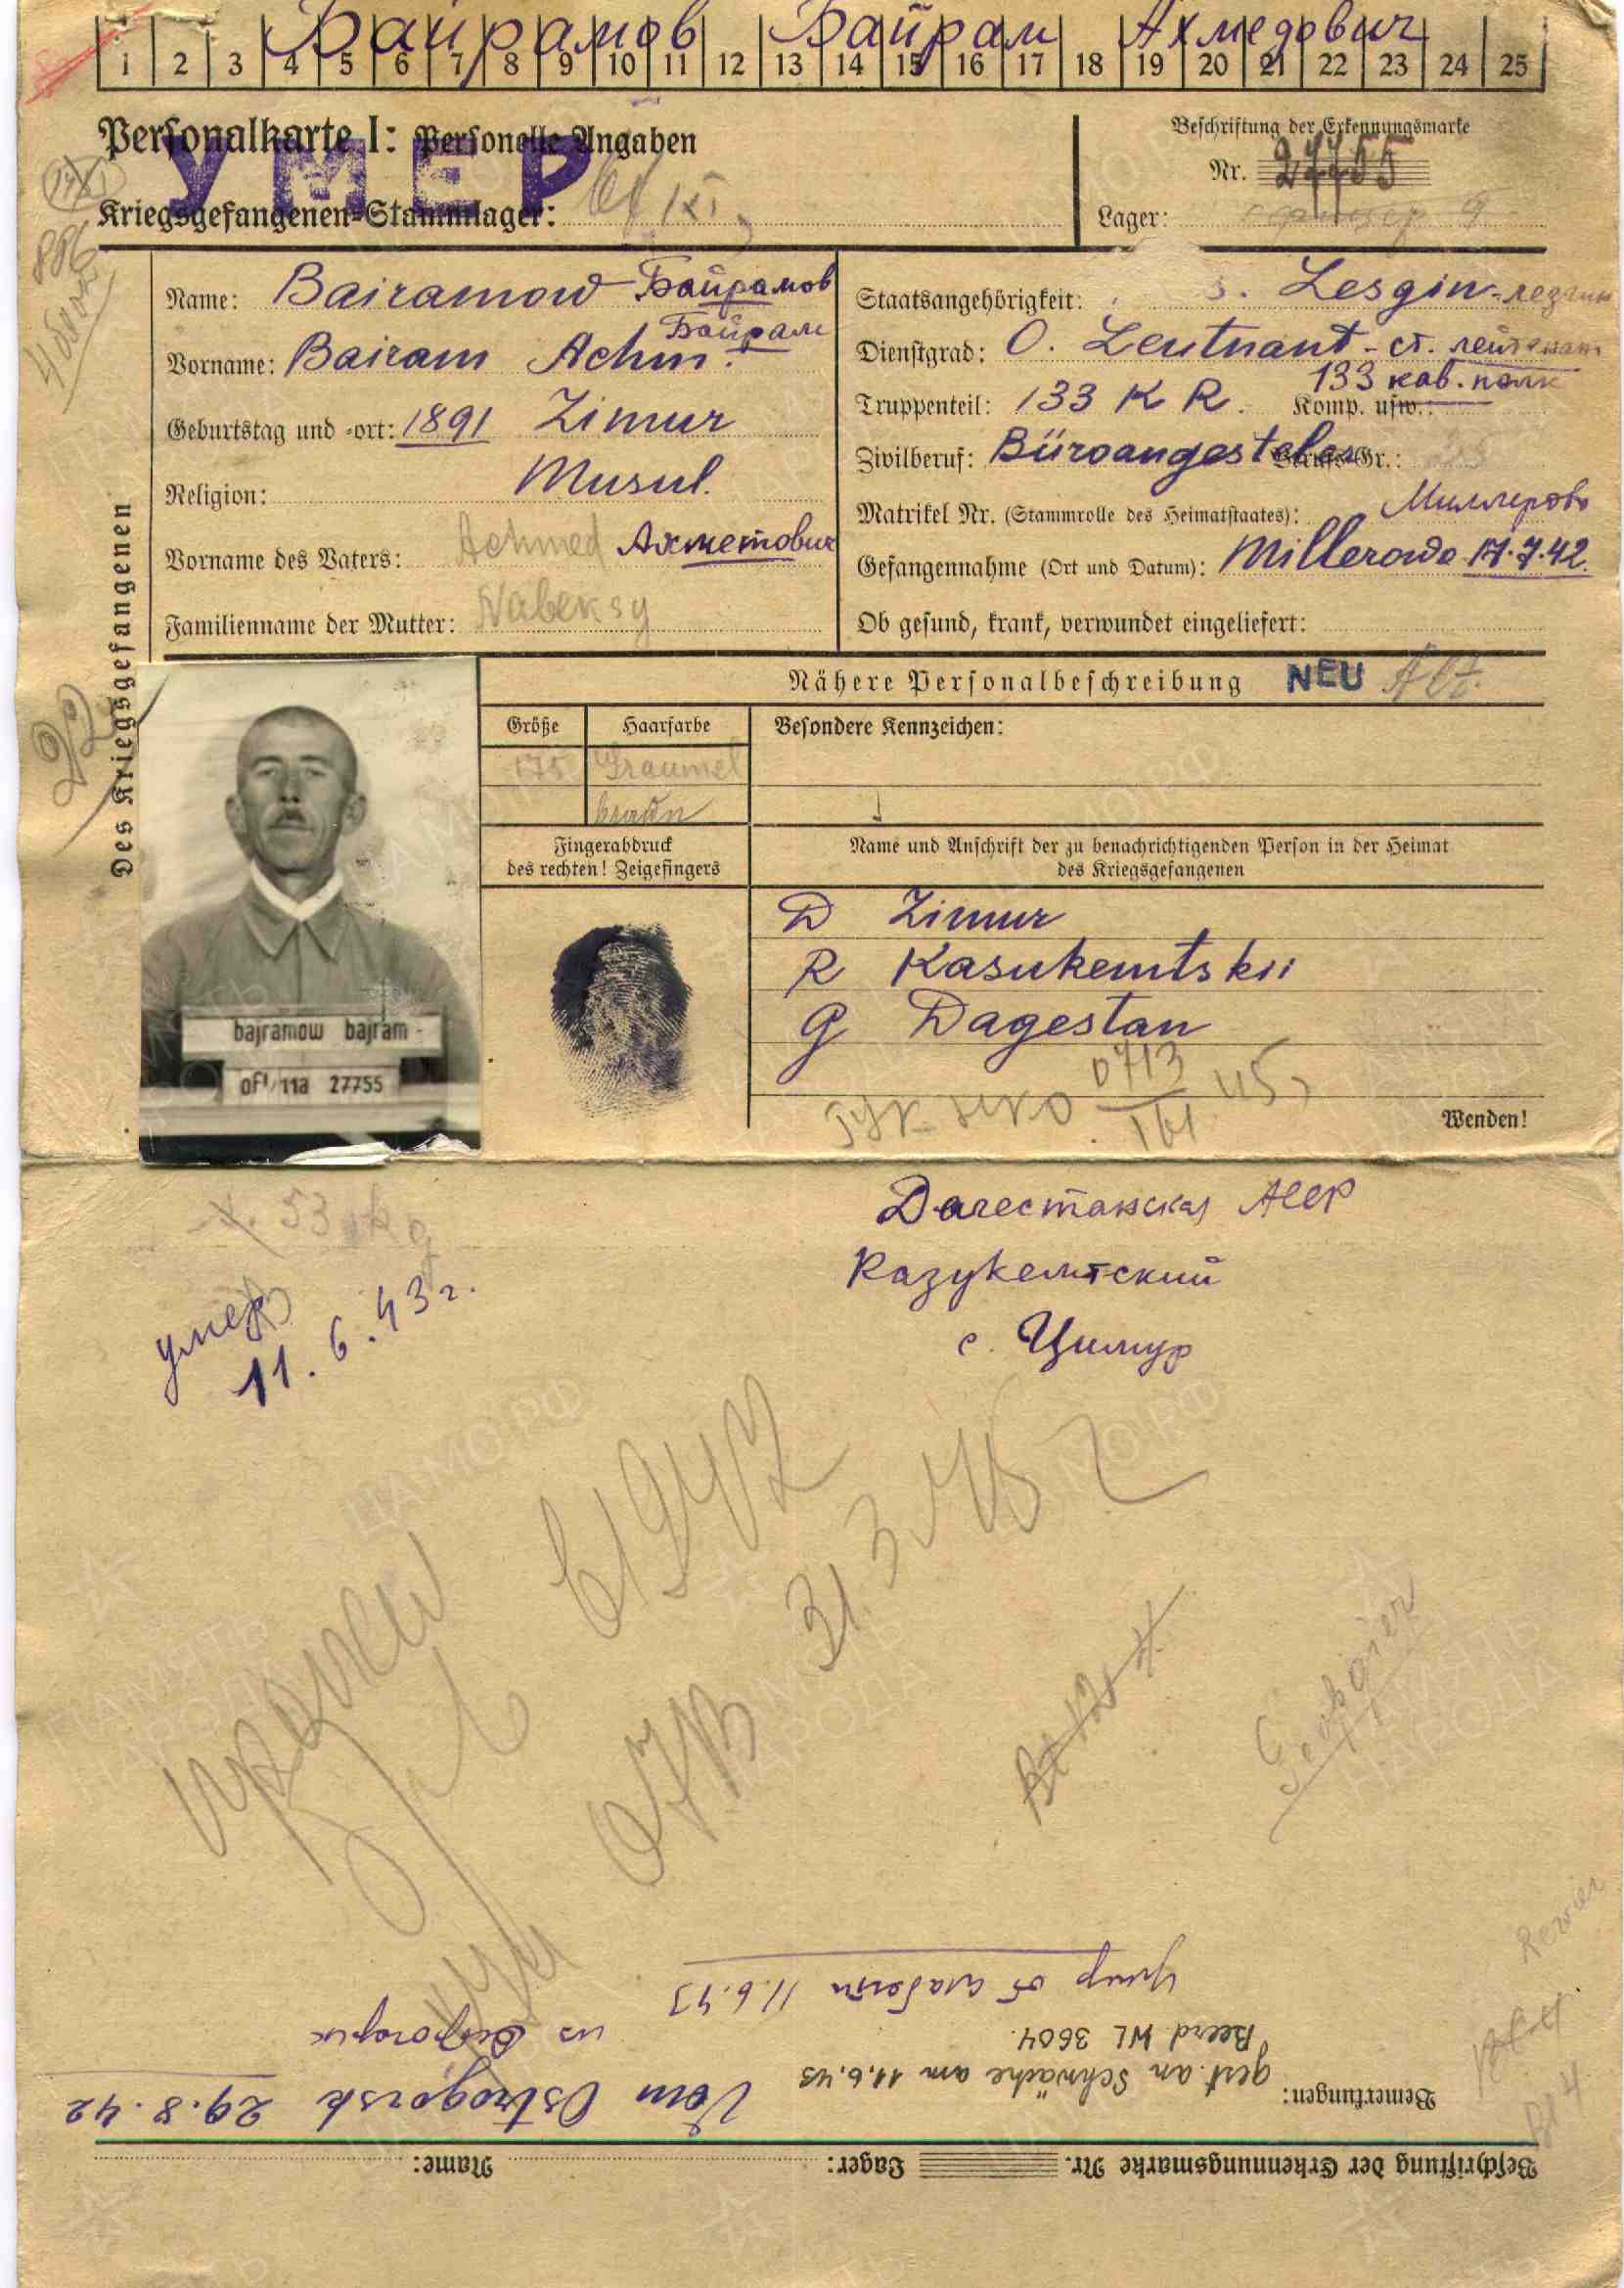 Байрамов Байрам Ахмедович
1 2 3 4 5 6 7 8 9 10 11 12 13 14 15 16 17 18 19 20 21 22 23 24 25
Personalkarte I: Personelle Angaben
УМЕР
Kriegsgefangenen-Stammlager:
Beschriftung der Erkennungsmarke
Nr. 27755
Lager:
886
Des Kriegsgefangenen
22
Name: Bairamow Байрамов
Байрам
Vorname: Bairam Achm.
Geburtstag und -ort: 1891 Zimur
Religion: Musul.
Vorname des Vaters: Achmed Ахметович
Familienname der Mutter: Nabeksy
Staatsangehörigkeit: Lesgin - лезгин
Dienstgrad: O. Leutnant - ст. лейтенант
133 кав. полк
Truppenteil: 133 K R. Komp. usw.:
Zivilberuf: Büroangest Berufs-Gr.:
Миллерово
Matrikel Nr. (Stammrolle des Heimatstaates):
Gefangennahme (Ort und Datum): Millerowo 17.7.42.
Ob gesund, krank, verwundet eingeliefert:
Nähere Personalbeschreibung NEU
Größe Haarfarbe Besondere Kennzeichen:
175 Graumel
braun
Fingerabdruck
des rechten! Zeigefingers
Name und Anschrift der zu benachrichtigenden Person in der Heimat
des Kriegsgefangenen
D Zimur
R Kasukemtskii
G Dagestan
ГУК НКО 0713
Wenden!
bajramow bajram -
of 11a 27755
53 kg
умер
11.6.43 г.
Дагестанская АССР
Казукемтский
с. Цимур
61942
31.3.45 г
ОКВ
Rewier
Умер от слабости 11.6.43
Beerd. WL 3604.
gest. an Schwäche am 11.6.43
Bemerkungen:
Vom Ostrogorsk 29.8.42
из
Beschriftung der Erkennungsmarke Nr. Lager: Name:
ПАМЯТЬ НАРОДА
ЦАМО.РФ